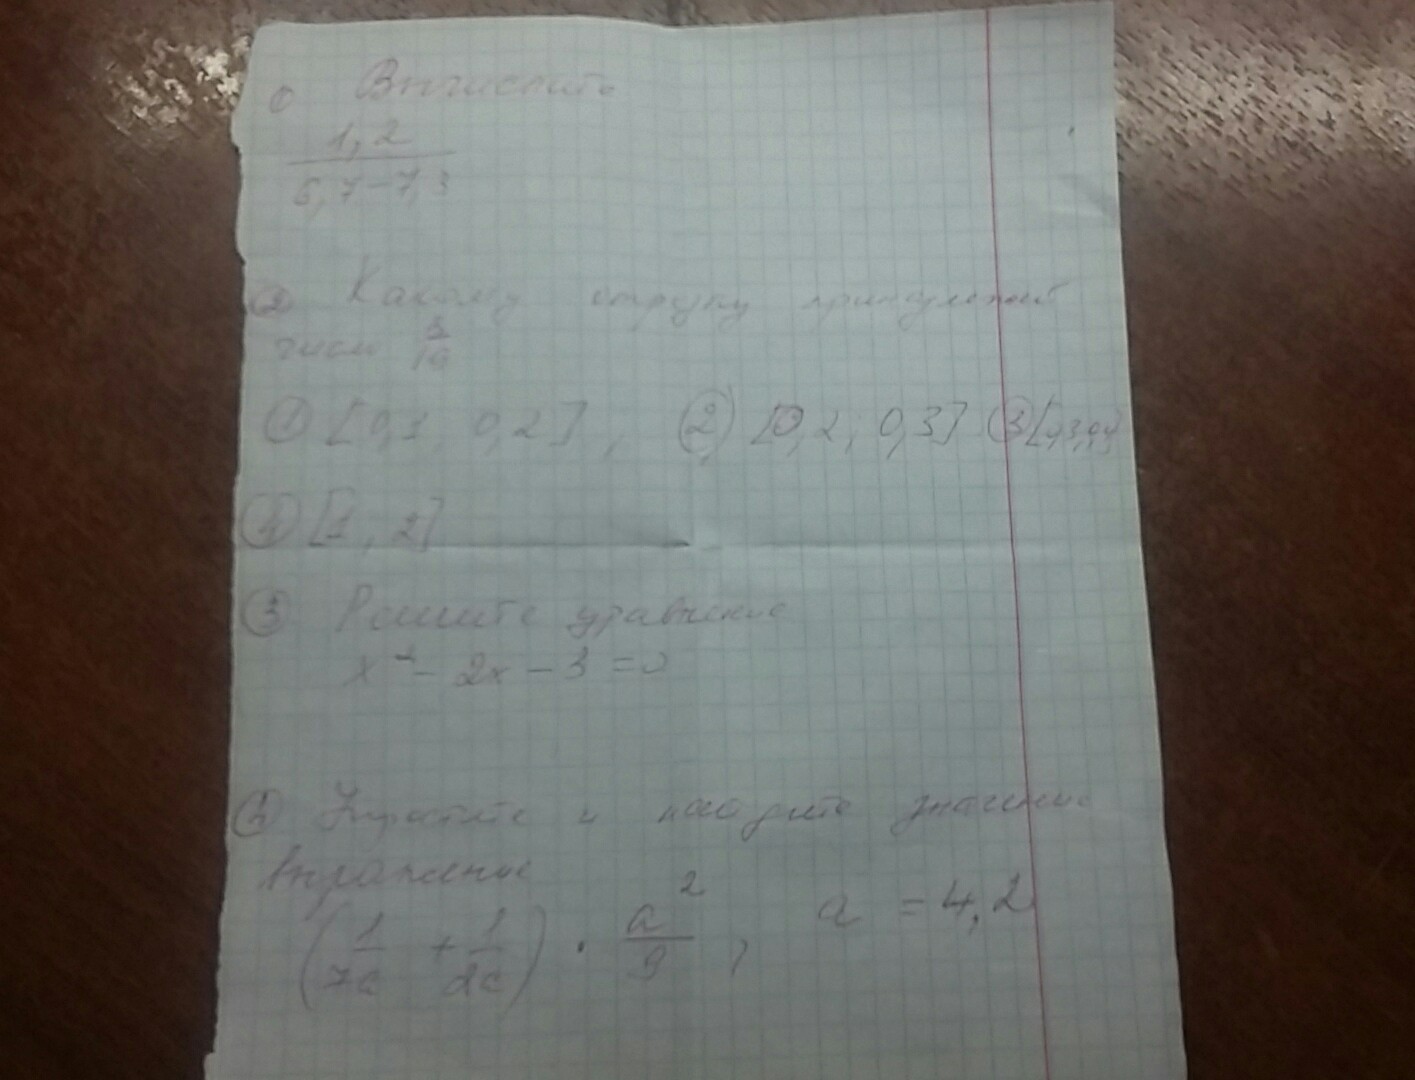 ① Вычислить
1,2
6,7-7,3
② Какому отрезку принадлежит
число 3/19
① [0,1, 0,2], ② [0,2; 0,3] ③ [0,3,0,4]
④ [1, 2]
③ Решите уравнение
x² - 2x - 3 = 0
④ Упростите и найдите значение
выражение
(1/7a + 1/2a) · a²/9, a = 4,2